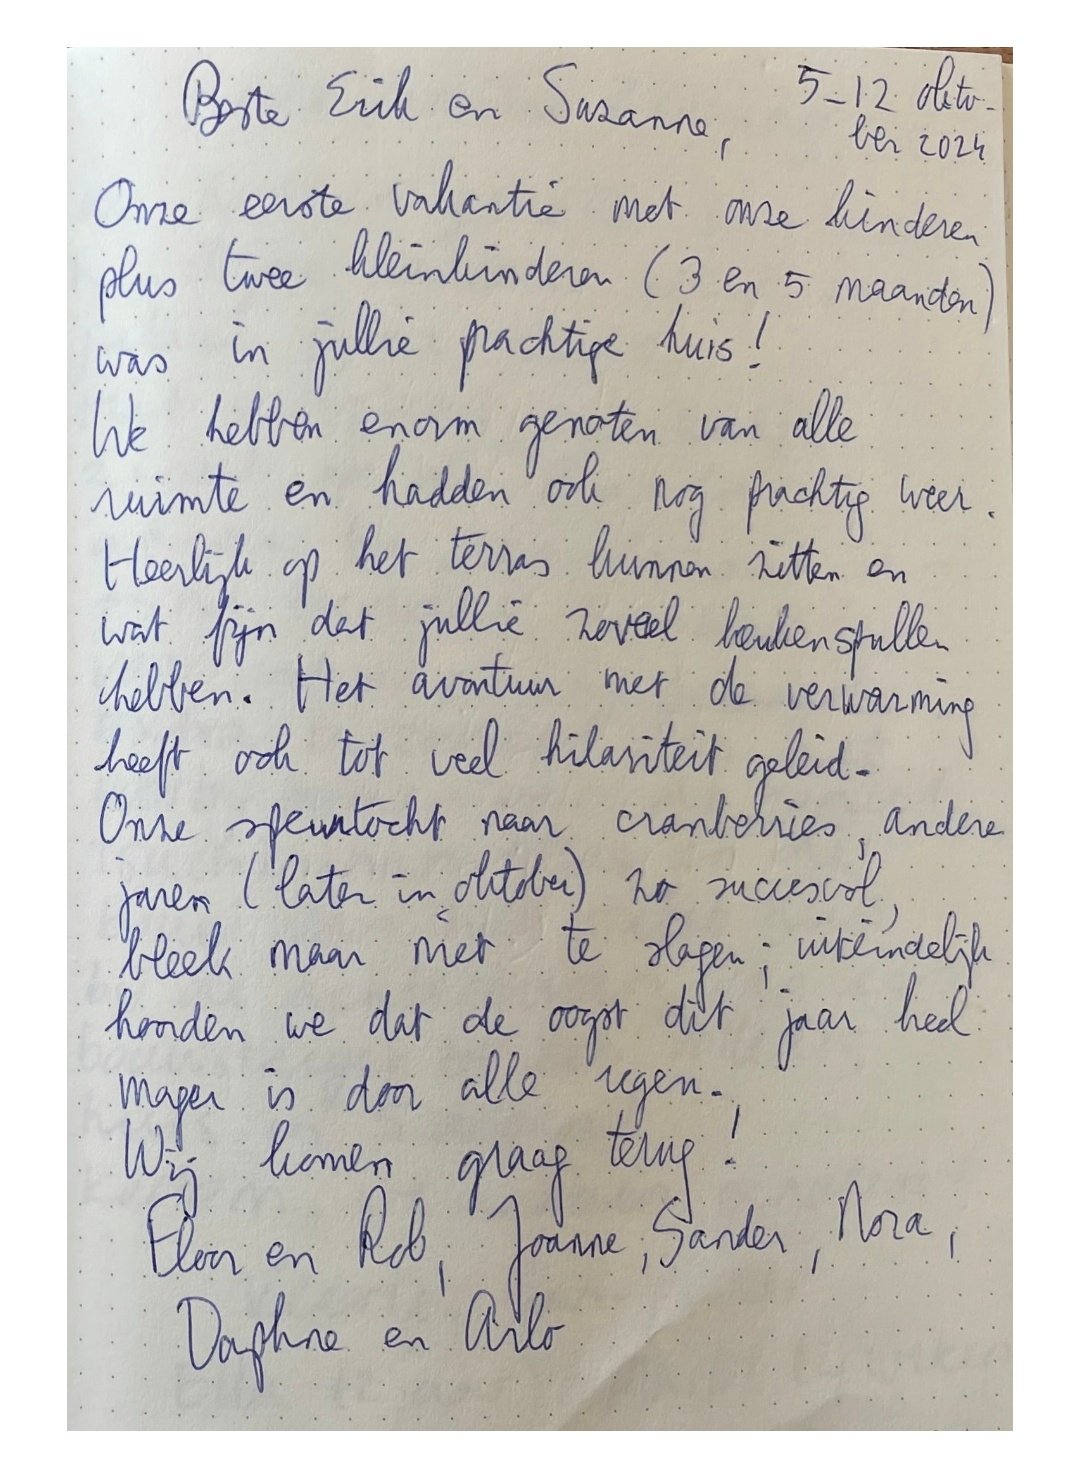 Beste Erik en Suzanne,
5-12 okto-
ber 2024
Onze eerste vakantie met onze kinderen
plus twee kleinkinderen (3 en 5 maanden)
was in jullie prachtige huis!
We hebben enorm genoten van alle
ruimte en hadden ook nog prachtig weer.
Heerlijk op het terras kunnen zitten en
wat fijn dat jullie zoveel keukenspullen
hebben. Het avontuur met de verwarming
heeft ook tot veel hilariteit geleid.
Onze speurtocht naar cranberries, andere
jaren (later in oktober) zo succesvol,
bleek maar niet te slagen; uiteindelijk
hoorden we dat de oogst dit jaar heel
mager is door alle regen.
Wij komen graag terug!
Floor en Rob, Joanne, Sander, Nora,
Daphne en Arlo